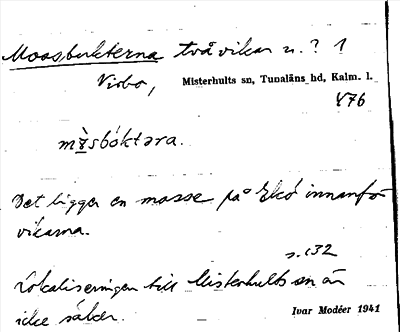 Mossbukterna två vikar n. ? 1
Virbo, Misterhults sn, Tunaläns hd, Kalm. l.
476
mȁsbóktəra.
Det ligger en mosse på Ekö innanför
vikarna.
s. 132
Lokaliseringen till Misterhults sn är
icke säker.
Ivar Modéer 1941